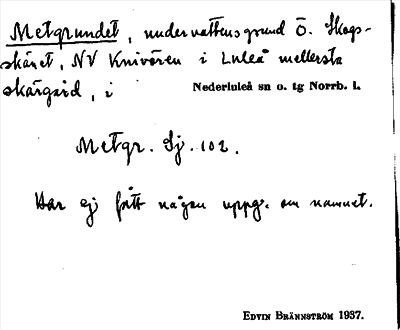 Metgrundet, undervattensgrund Ö. Skogs-
skäret, NV Knivören i Luleå mellersta
skärgård, i Nederluleå sn o. tg Norrb. l.
Metgr. Sj. 102.
Har ej fått någon uppg. om namnet.
EDVIN BRÄNNSTRÖM 1937.